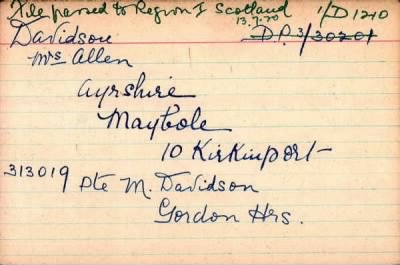 File passed to Region I Scotland 1/D1210
13.7.20
Davidson D.P.3/30201
Mrs Allen
Ayrshire
Maybole
10 Kirkinport
313019 Pte M. Davidson
Gordon Hrs.